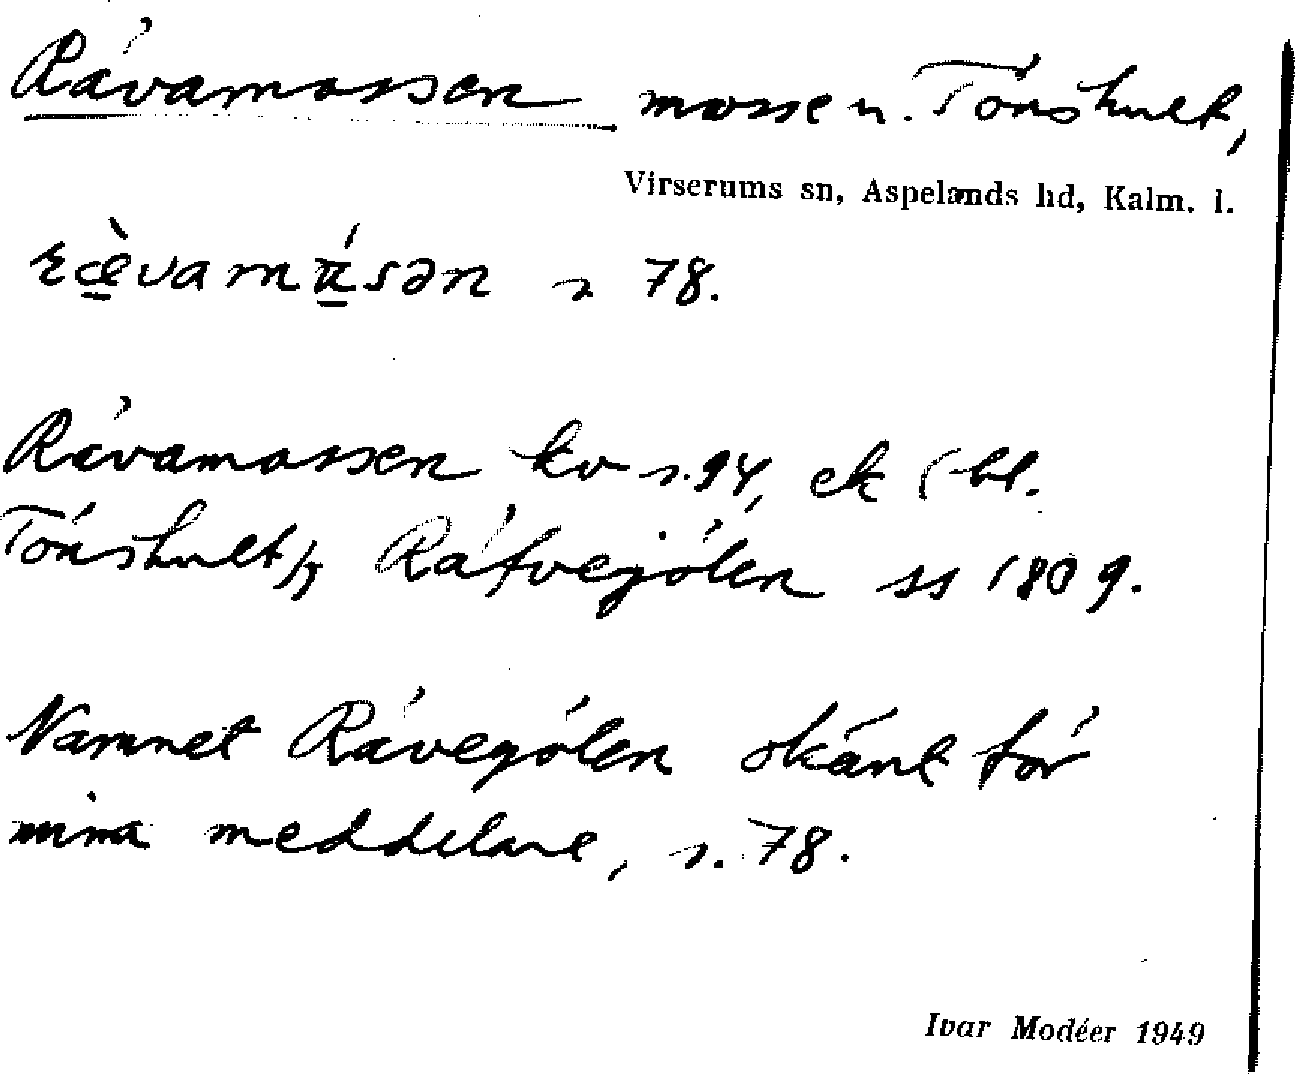 Rävamossen mosse u. Tönshult,
Virserums sn, Aspelands hd, Kalm. l.
rævamåsən s 78.
Rävamossen kv s. 94, ek (bl.
Tönshult), Räfvegölen ss 1809.
Namnet Rävegölen okänt för
mina meddelare, s. 78.
Ivar Modéer 1949